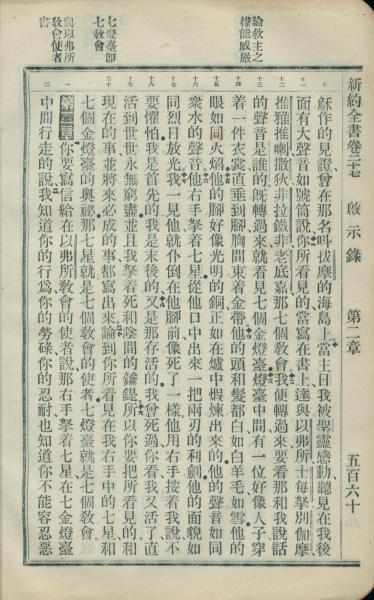 新約全書卷二十七　啟示錄　第二章　五百六十
論救主之
權能威嚴
七燈臺卽
七敎會
與以弗所
敎會使者
書
穌作的見證曾在那名叫拔摩的海島上當主日我被聖靈感動聽見在我後
十一 面有大聲音如號筒說你所看見的當寫在書上達與以弗所士每拏別伽摩
推雅推喇撒狄非拉鐵非老底嘉那七個敎會我便轉過來要看那和我說話
的聲音是誰的旣轉過來就看見七個金燈臺燈臺中間有一位好像人子穿
着一件衣裳直垂到腳胸間束着金帶他的頭和髮都白如白羊毛如雪他的
眼如同火焰他的腳好像光明的銅正如在爐中煅煉出來的他的聲音如同
十六 衆水的聲音他右手拏着七星從他口中出來一把兩刃的利劍他的面貌如
十七 同烈日放光我一見他就仆倒在他腳前像死了一樣他用右手按着我說不
十八 要懼怕我是首先的我是末後的又是那存活的我曾死過你看我又活了直
活到世世永無窮盡並且我拏着死和陰間的鑰匙所以你要把所看見的和
二十 現在的事並將來必成的事都寫出來論到你所看見在我右手中的七星和
七個金燈臺的奧祕那七星就是七個敎會的使者七燈臺就是七個敎會
一 第二章 你要寫信給在以弗所敎會的使者說那右手拏着七星在七金燈臺
二 中間行走的說我知道你的行爲你的勞碌你的忍耐也知道你不能容忍惡